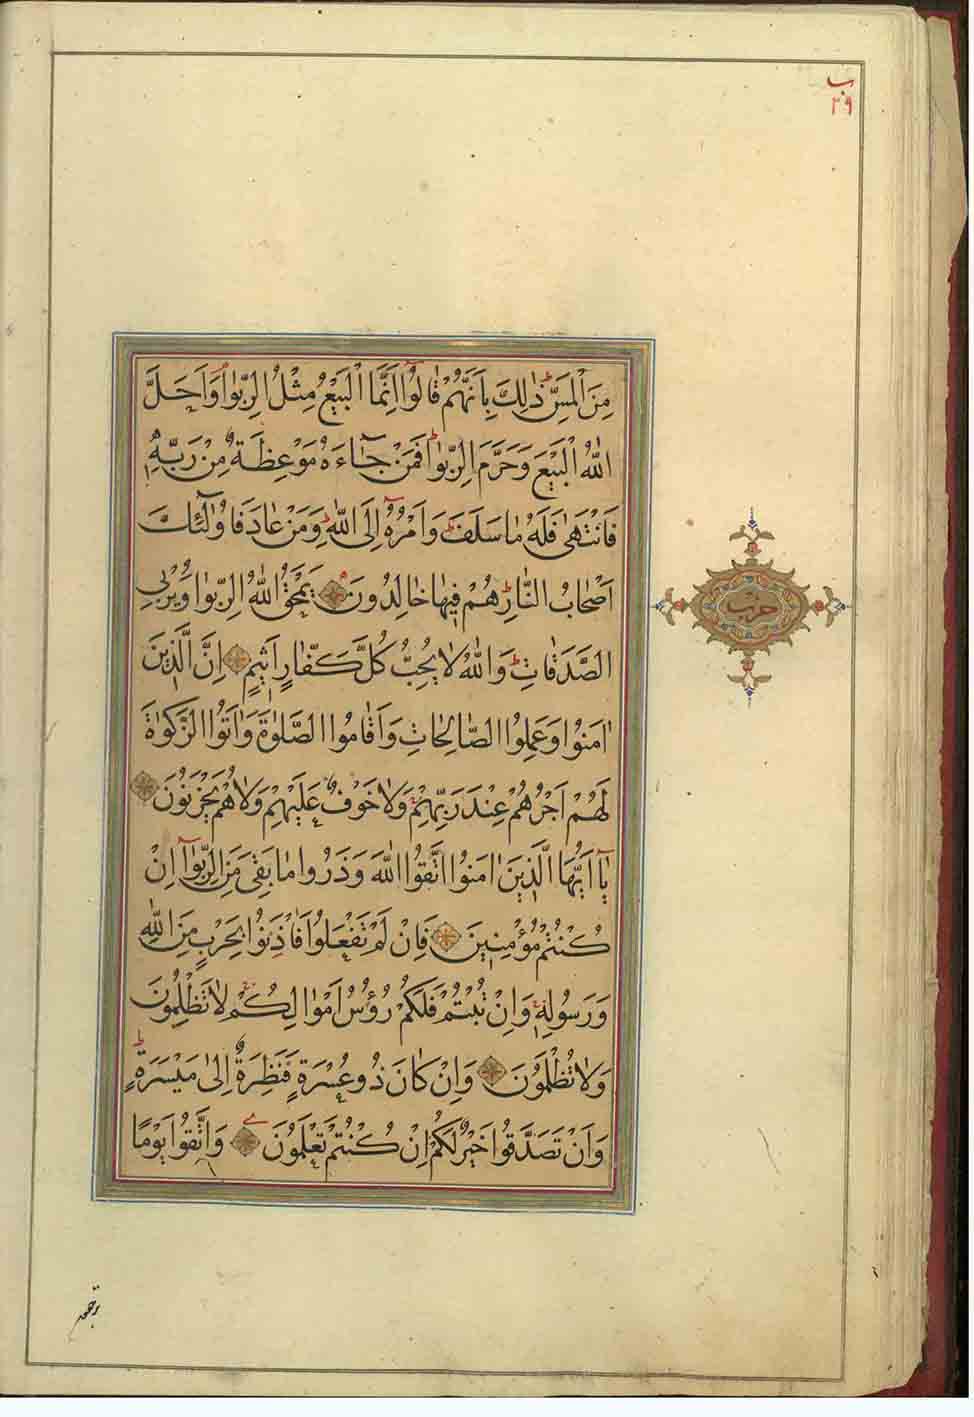 ب
٢٩
مِنَ الْمَسِّ ذٰلِكَ بِاَنَّهُمْ قَالُوا اِنَّمَا الْبَيْعُ مِثْلُ الرِّبٰوا وَاَحَلَّ
اللّٰهُ الْبَيْعَ وَحَرَّمَ الرِّبٰوا فَمَنْ جَاءَهُ مَوْعِظَةٌ مِنْ رَبِّهِ
فَانْتَهٰى فَلَهُ مَا سَلَفَ وَاَمْرُهُ اِلَى اللّٰهِ وَمَنْ عَادَ فَاُولٰئِكَ
اَصْحَابُ النَّارِ هُمْ فِيهَا خَالِدُونَ يَمْحَقُ اللّٰهُ الرِّبٰوا وَيُرْبِي
حزب
الصَّدَقَاتِ وَاللّٰهُ لَا يُحِبُّ كُلَّ كَفَّارٍ اَثِيمٍ اِنَّ الَّذِينَ
اٰمَنُوا وَعَمِلُوا الصَّالِحَاتِ وَاَقَامُوا الصَّلٰوةَ وَاٰتَوُا الزَّكٰوةَ
لَهُمْ اَجْرُهُمْ عِنْدَ رَبِّهِمْ وَلَا خَوْفٌ عَلَيْهِمْ وَلَا هُمْ يَحْزَنُونَ
يَا اَيُّهَا الَّذِينَ اٰمَنُوا اتَّقُوا اللّٰهَ وَذَرُوا مَا بَقِيَ مِنَ الرِّبٰوا اِنْ
كُنْتُمْ مُؤْمِنِينَ فَاِنْ لَمْ تَفْعَلُوا فَاْذَنُوا بِحَرْبٍ مِنَ اللّٰهِ
وَرَسُولِهِ وَاِنْ تُبْتُمْ فَلَكُمْ رُؤُسُ اَمْوَالِكُمْ لَا تَظْلِمُونَ
وَلَا تُظْلَمُونَ وَاِنْ كَانَ ذُو عُسْرَةٍ فَنَظِرَةٌ اِلٰى مَيْسَرَةٍ
وَاَنْ تَصَدَّقُوا خَيْرٌ لَكُمْ اِنْ كُنْتُمْ تَعْلَمُونَ وَاتَّقُوا يَوْمًا